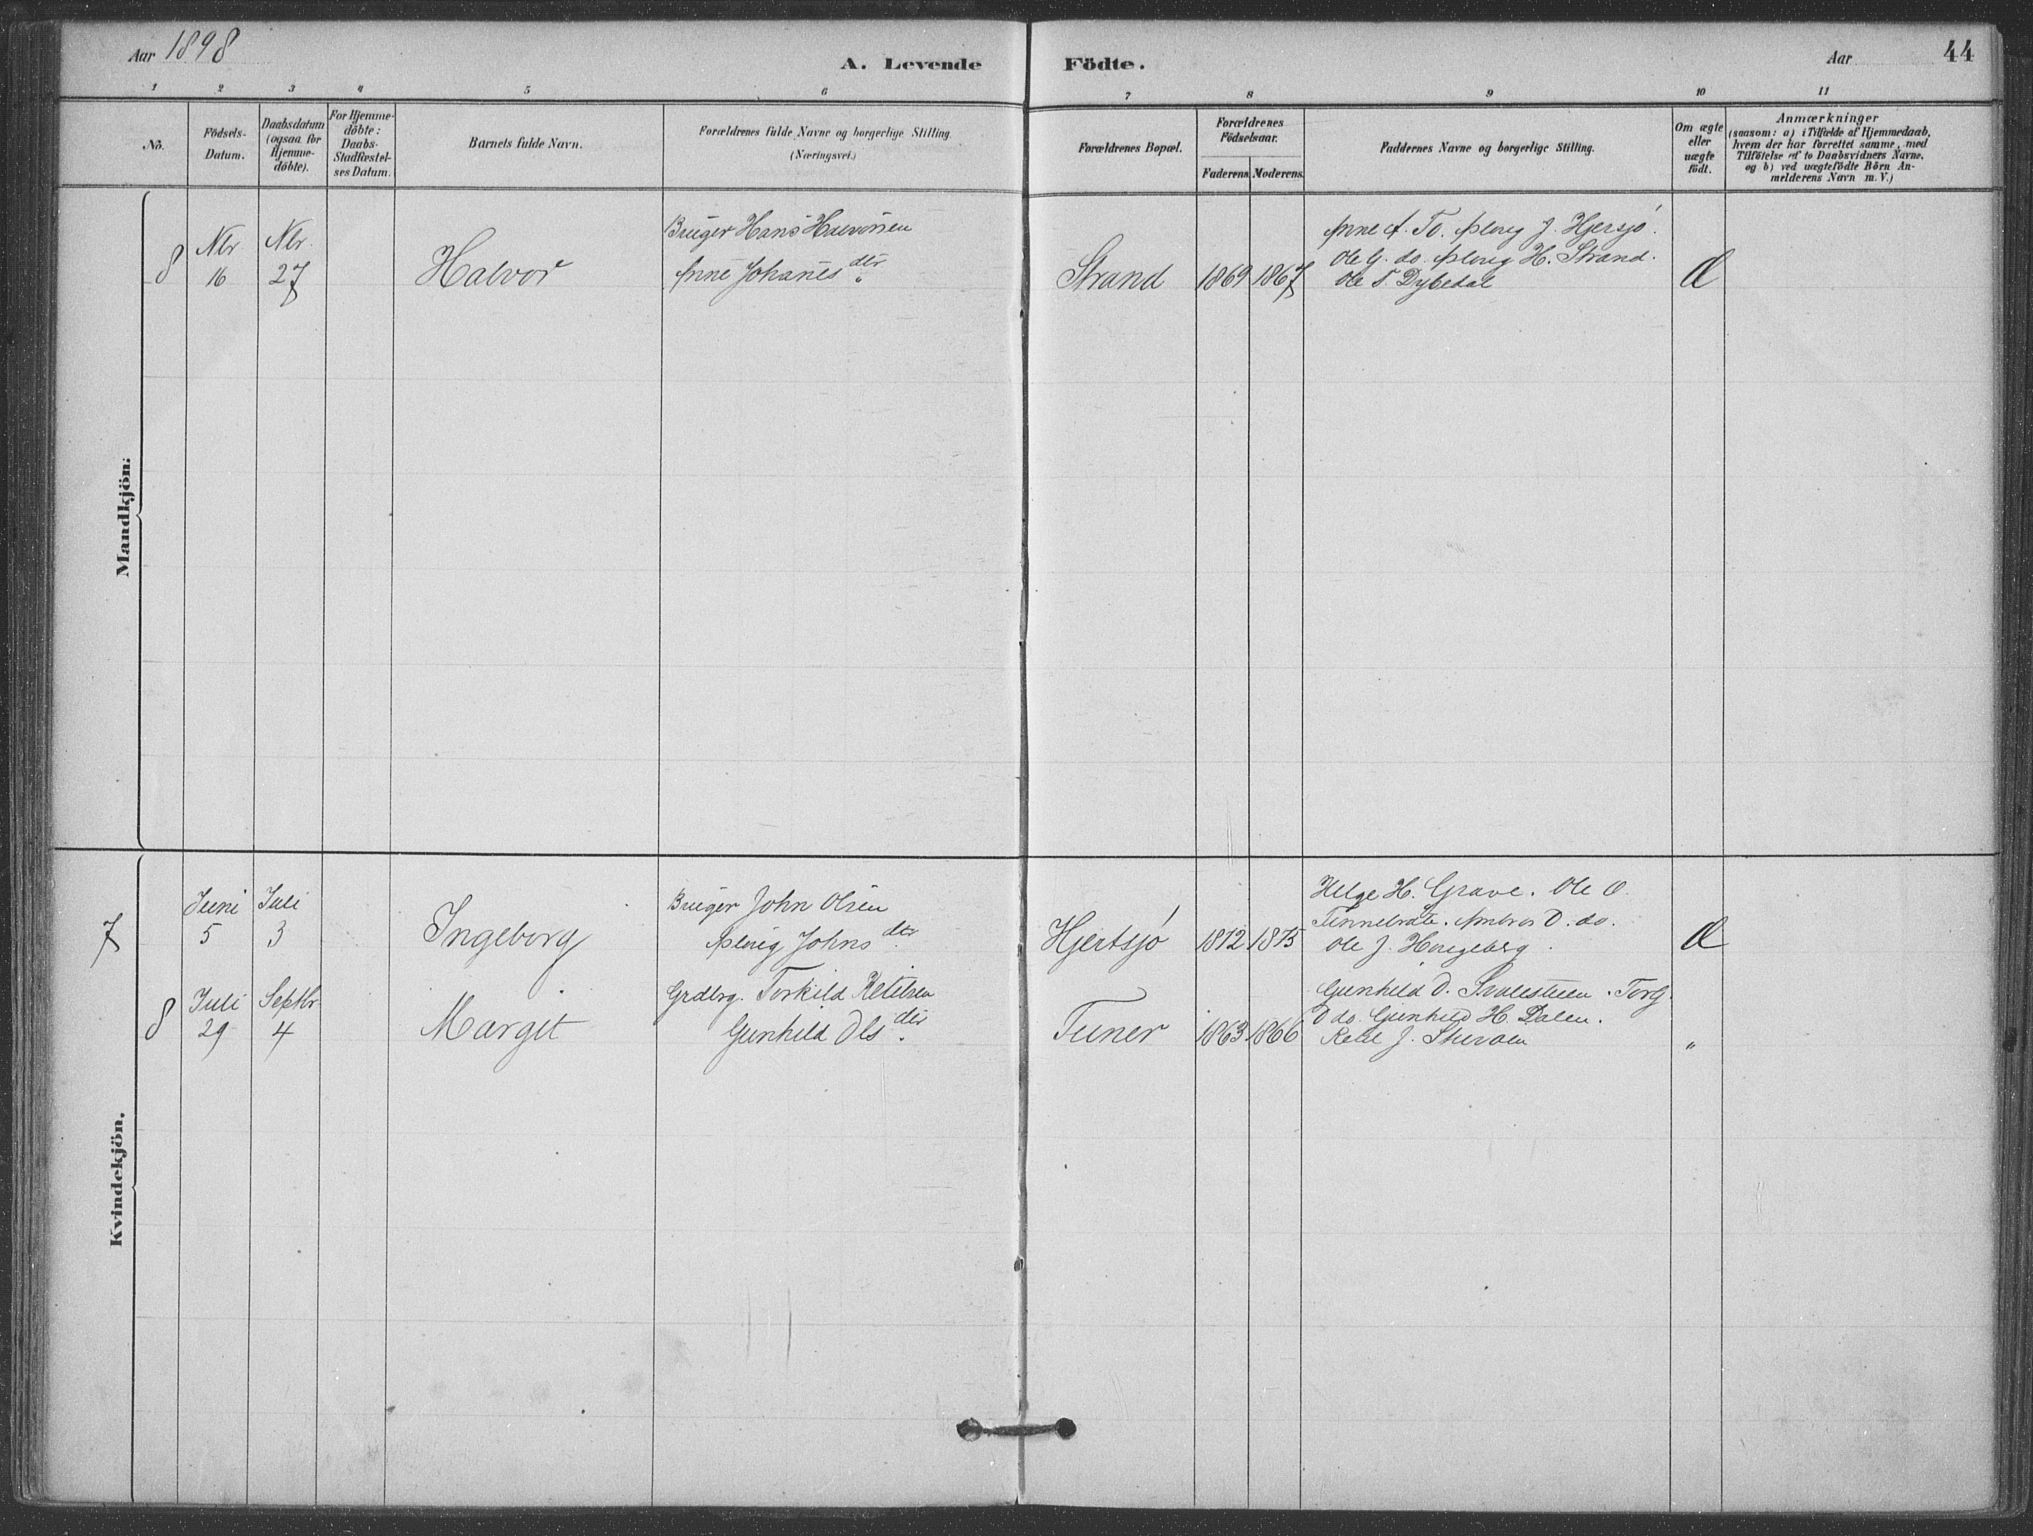 Aar 1898
A. Levende Födte.
Aar
44
1 2 3 4 5 6 7 8 9 10 11
No.
Födsels-
Datum.
Daabsdatum
(ogsaa for
Hjemme-
döbte).
For Hjemme-
döbte:
Daabs-
Stadfæstel-
ses Datum.
Barnets fulde Navn.
Forældrenes fulde Navne og borgerlige Stilling.
(Næringsvei.)
Forældrenes Bopæl.
Forældrenes
Födselsaar.
Faderens. Moderens.
Faddernes Navne og borgerlige Stilling.
Om ægte
eller
uægte
födt.
Anmærkninger
(saasom: a) i Tilfælde af Hjemmedaab,
hvem der har forrettet samme, med
Tilföielse af to Daabsvidners Navne,
og b) ved uægtefödte Börn An-
melderens Navn m. V.)
Mandkjön:
8
Nbr
16
Nbr.
27
Halvor
Bruger Hans Halvorsen
Anne Johanes dtr.
Strand
1869 1867
Anne A. To. Aslaug J. Hjersjö.
Ole G. do. Aslaug H. Strand.
Ole T. Dybedal
Æ
Kvindekjön.
7
Juni
5
Juli
3
Ingeborg
Bruger John Olsen
Aslaug Johns dtr
Hjertsjö
1872 1875
Helge H. Grave. Ole O.
Tinnebrate. D. do.
Ole J. Haugeberg.
Æ
8
Juli
29
Septbr.
4
Margit
Grdbrg. Torkild Ketilsen
Gunhild Ols dtr.
Tuner
1863 1866
Gunhild O. . Torg.
O do. Gunhild H. Dalen.
J.
"